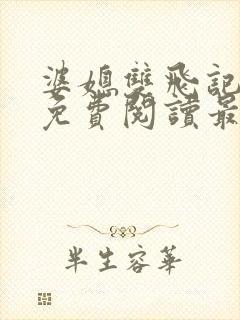 婆媳雙飛記
免費閱讀最
半生容華